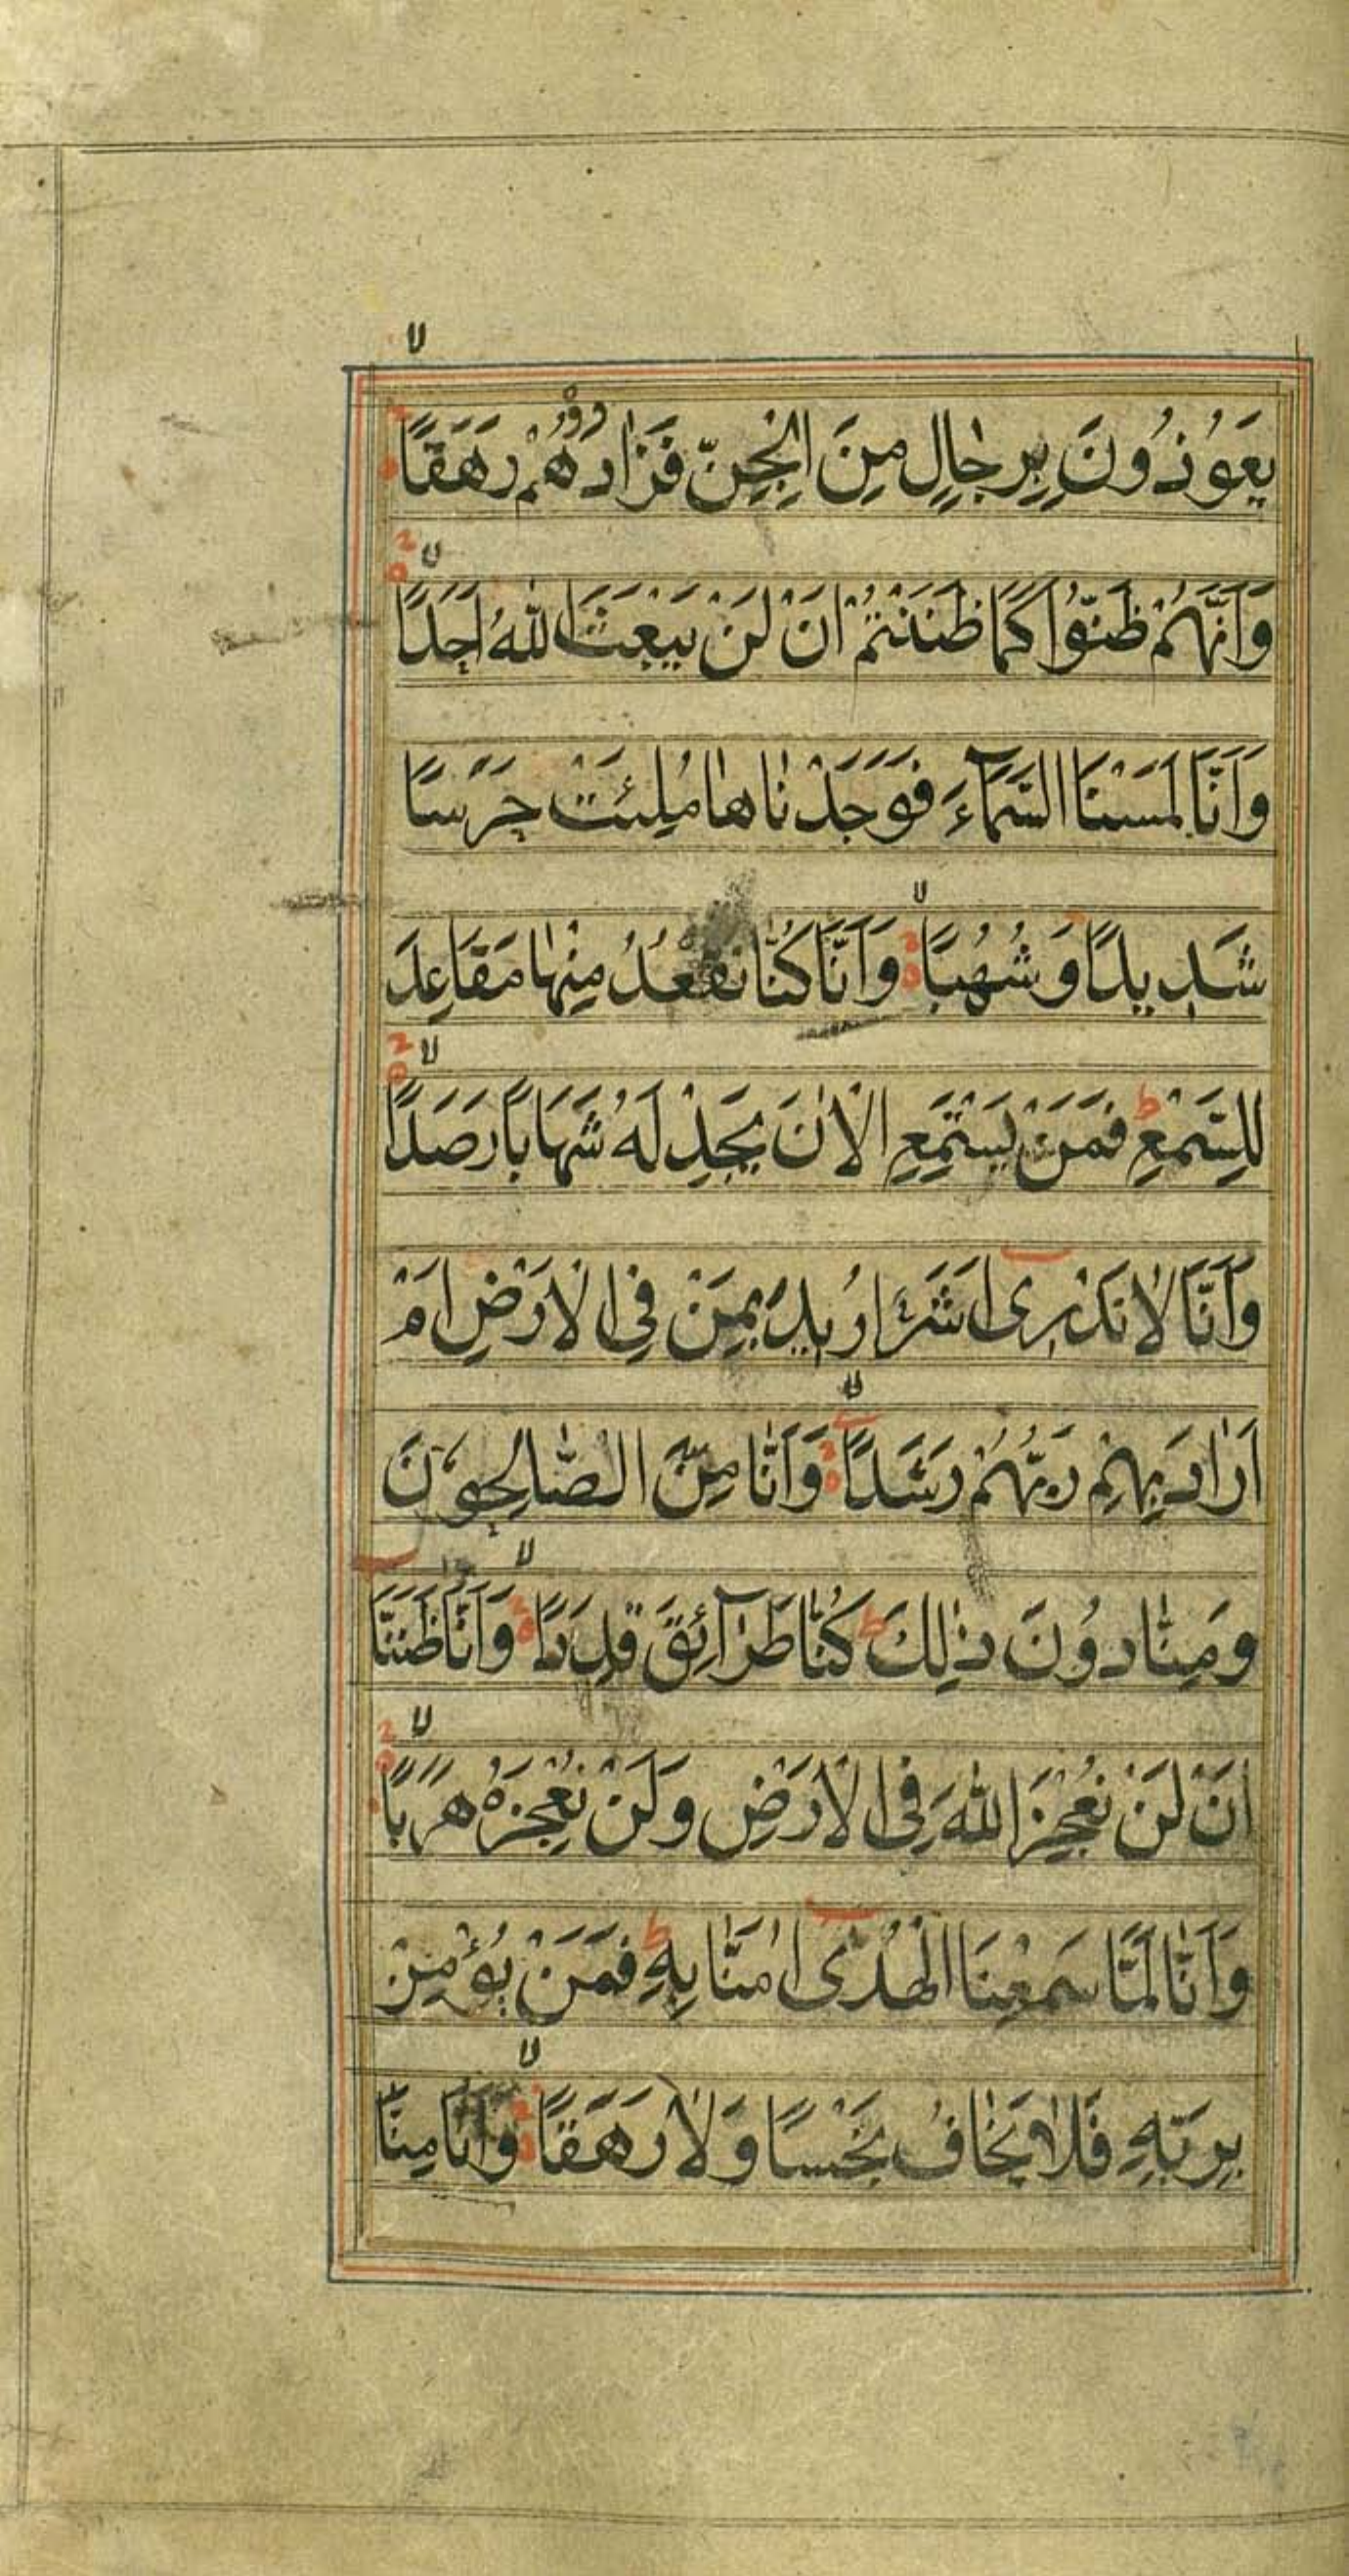 يَعُوذُونَ بِرِجَالٍ مِنَ الْجِنِّ فَزَادُوهُمْ رَهَقًا
وَاَنَّهُمْ ظَنُّوا كَمَا ظَنَنْتُمْ اَنْ لَنْ يَبْعَثَ اللهُ اَحَدًا
وَاَنَّا لَمَسْنَا السَّمَآءَ فَوَجَدْنَاهَا مُلِئَتْ حَرَسًا
شَدِيدًا وَشُهُبًا وَاَنَّا كُنَّا نَقْعُدُ مِنْهَا مَقَاعِدَ
لِلسَّمْعِ ط فَمَنْ يَسْتَمِعِ الْاٰنَ يَجِدْ لَهُ شِهَابًا رَصَدًا
وَاَنَّا لَا نَدْرِى اَشَرٌّ اُرِيدَ بِمَنْ فِى الْاَرْضِ اَمْ
اَرَادَ بِهِمْ رَبُّهُمْ رَشَدًا وَاَنَّا مِنَّا الصَّالِحُونَ
وَمِنَّا دُونَ ذٰلِكَ ط كُنَّا طَرَآئِقَ قِدَدًا وَاَنَّا ظَنَنَّا
اَنْ لَنْ نُعْجِزَ اللهَ فِى الْاَرْضِ وَلَنْ نُعْجِزَهُ هَرَبًا
وَاَنَّا لَمَّا سَمِعْنَا الْهُدٰى اٰمَنَّا بِهِ ط فَمَنْ يُؤْمِنْ
بِرَبِّهِ فَلَا يَخَافُ بَخْسًا وَلَا رَهَقًا وَاَنَّا مِنَّا